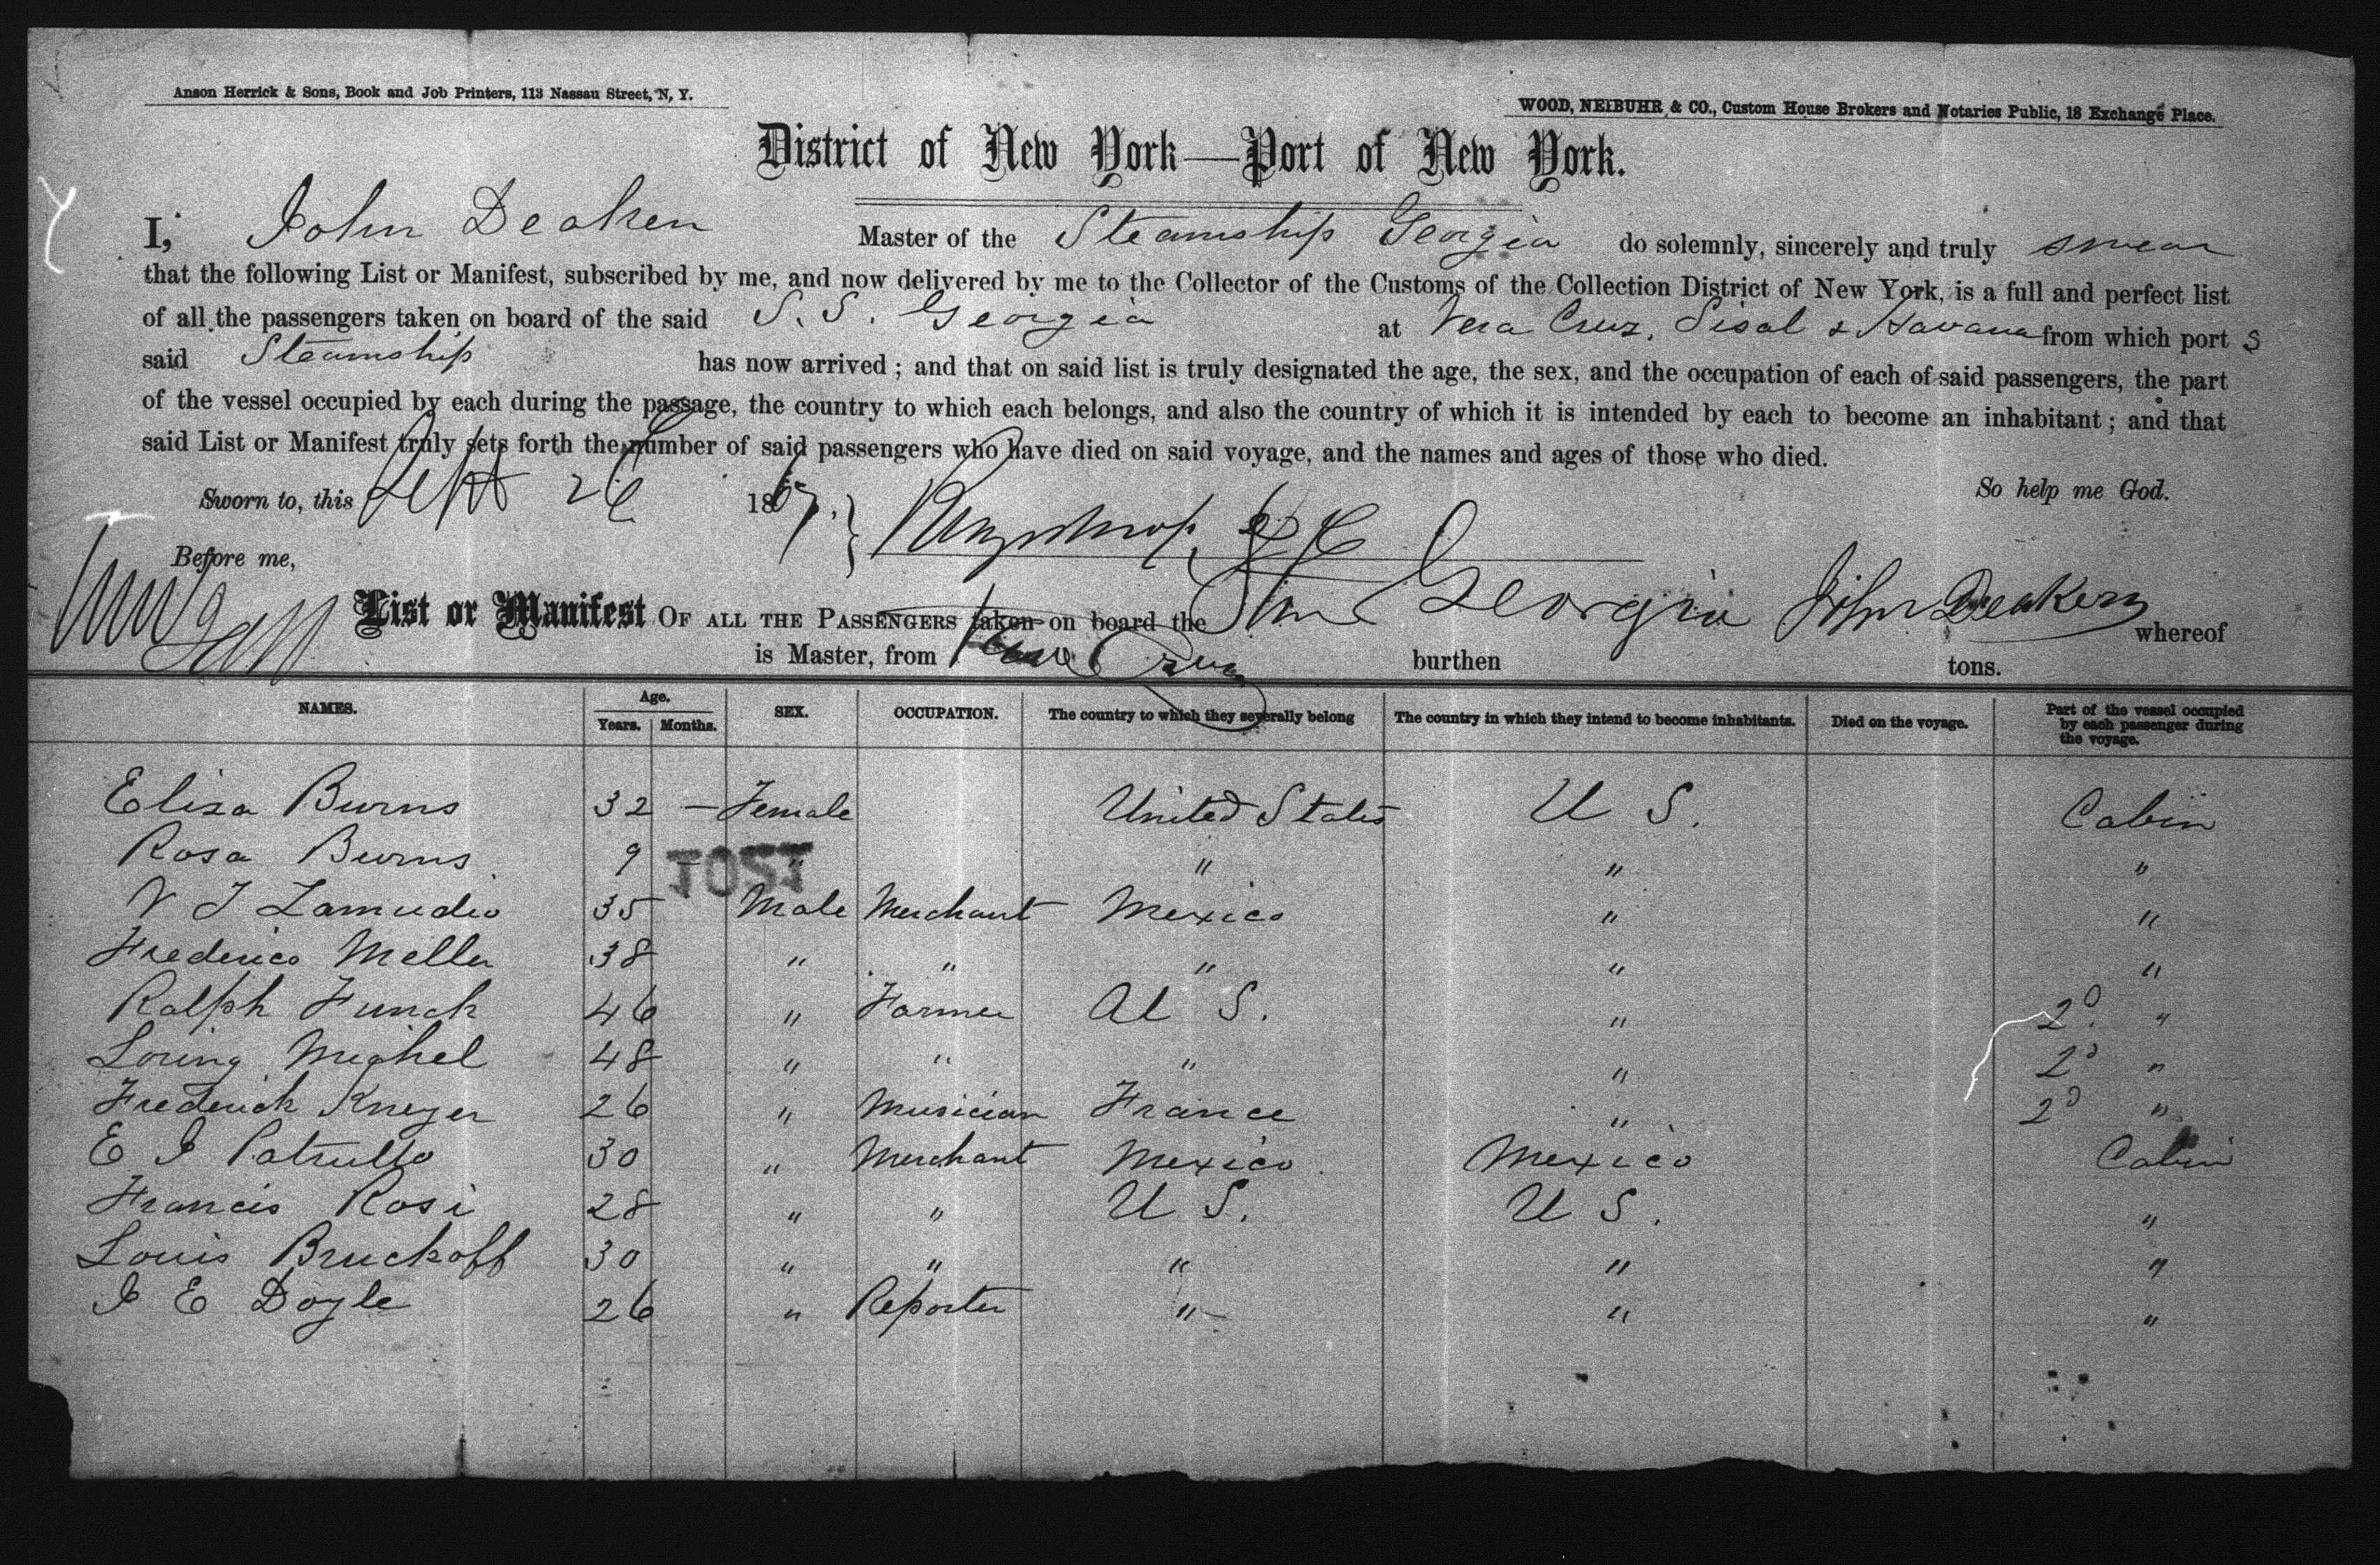 Anson Herrick & Sons, Book and Job Printers, 113 Nassau Street, N. Y.
WOOD, NEIBUHR & CO., Custom House Brokers and Notaries Public, 18 Exchange Place.
District of New York—Port of New York.
I, John Deaken Master of the Steamship Georgia do solemnly, sincerely and truly swear
that the following List or Manifest, subscribed by me, and now delivered by me to the Collector of the Customs of the Collection District of New York, is a full and perfect list
of all the passengers taken on board of the said S. S. Georgia at Vera Cruz, Sisal & Havana from which port s
said Steamship has now arrived ; and that on said list is truly designated the age, the sex, and the occupation of each of said passengers, the part
of the vessel occupied by each during the passage, the country to which each belongs, and also the country of which it is intended by each to become an inhabitant ; and that
said List or Manifest truly sets forth the number of said passengers who have died on said voyage, and the names and ages of those who died.
Sworn to, this Sept 26 1867. So help me God.
Before me,
List or Manifest OF ALL THE PASSENGERS taken on board the Georgia John Deaken whereof
is Master, from Vera Cruz burthen tons.
NAMES. Age. Years. Months. SEX. OCCUPATION. The country to which they severally belong The country in which they intend to become inhabitants. Died on the voyage. Part of the vessel occupied by each passenger during the voyage.
Eliza Burns 32 — Female United States U S. Cabin
Rosa Burns 9 - " " " "
1021
V J Zamudio 35 Male Merchant Mexico " "
Frederico Meller 38 " " " " "
Ralph Funck 46 " Farmer U S. " 2d. "
Loring Mighel 48 " " " " 2d "
Frederick Krieger 26 " Musician France " 2d "
E J Patrullo 30 " Merchant Mexico. Mexico Cabin
Francis Rosi 28 " " U S. U S. "
Louis Bruckoff 30 " " " " "
J E Doyle 26 " Reporter " " "